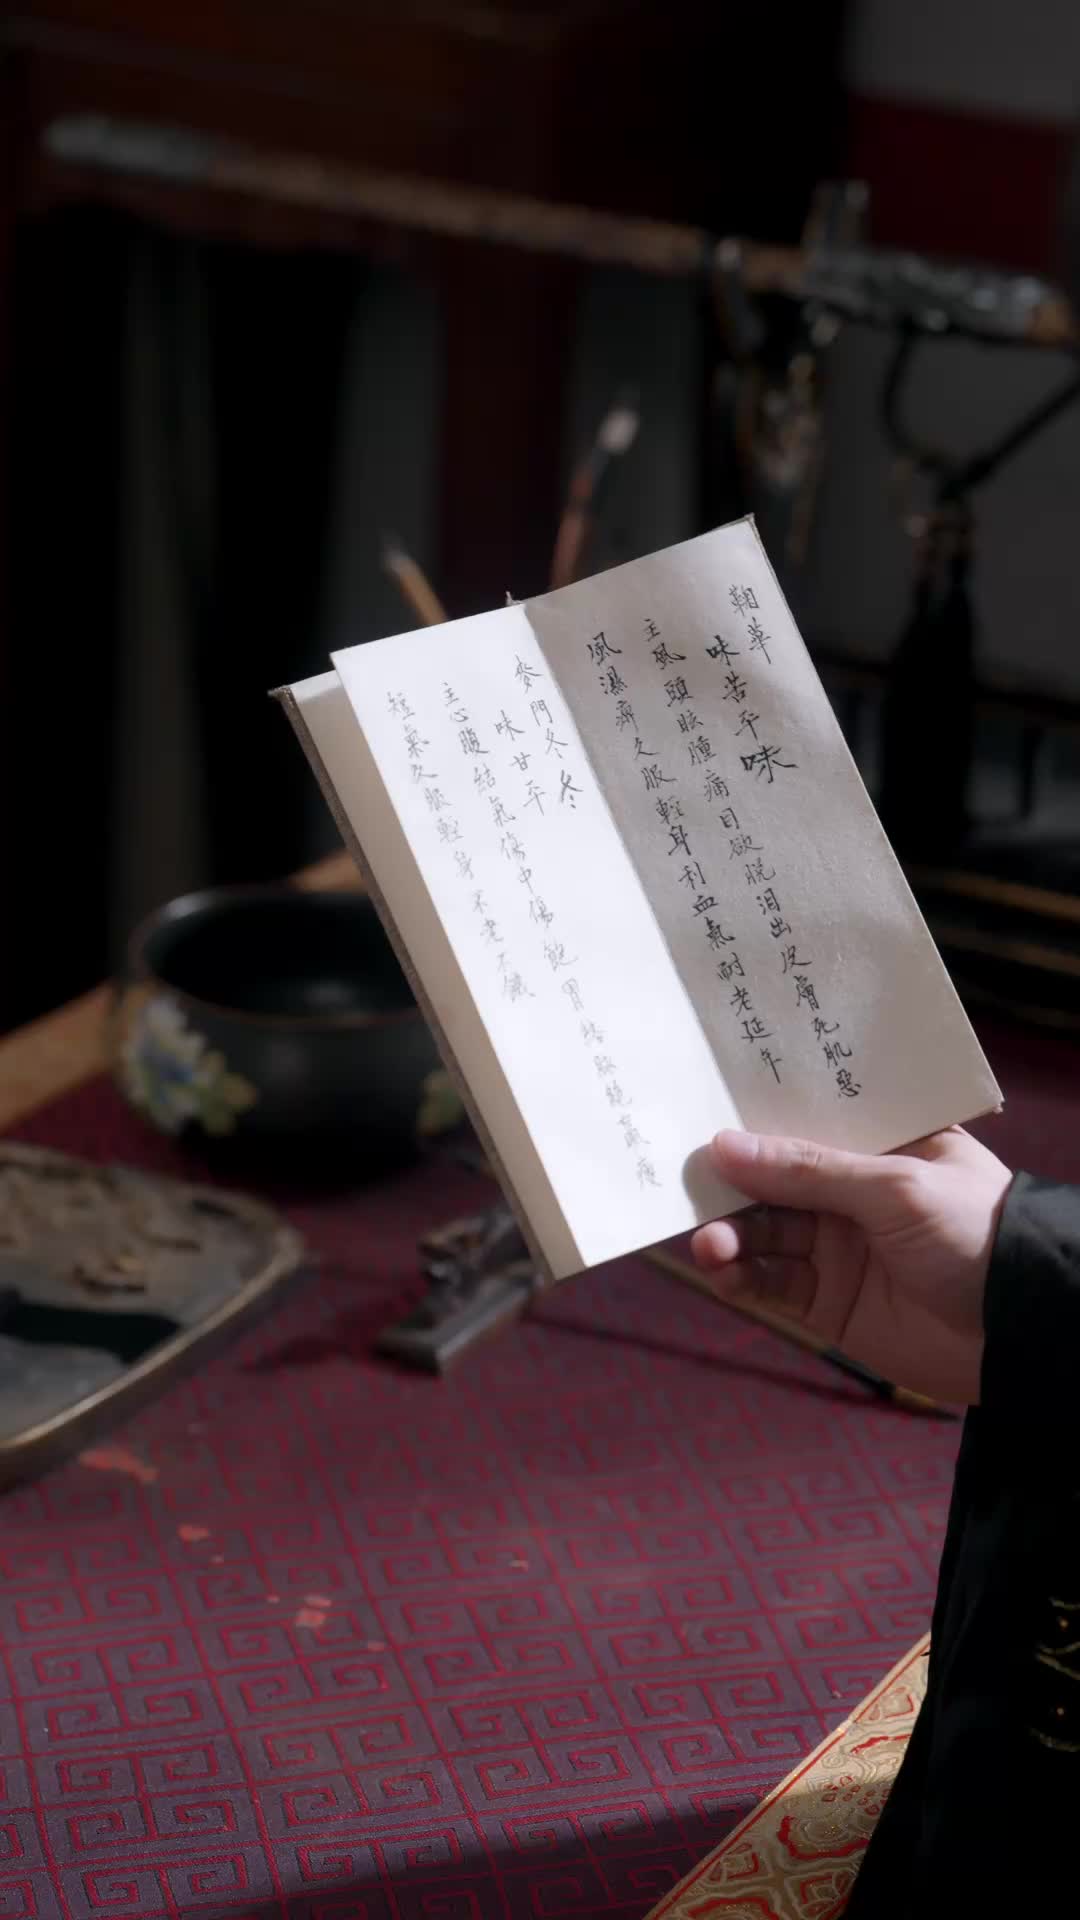 鞠華
味苦平味
主風頭眩腫痛目欲脱泪出皮膚死肌惡
風濕痹久服輕身利血氣耐老延年
麥門冬冬
味甘平
主心腹結氣傷中傷飽胃絡脉絕羸瘦
短氣久服輕身不老不饑